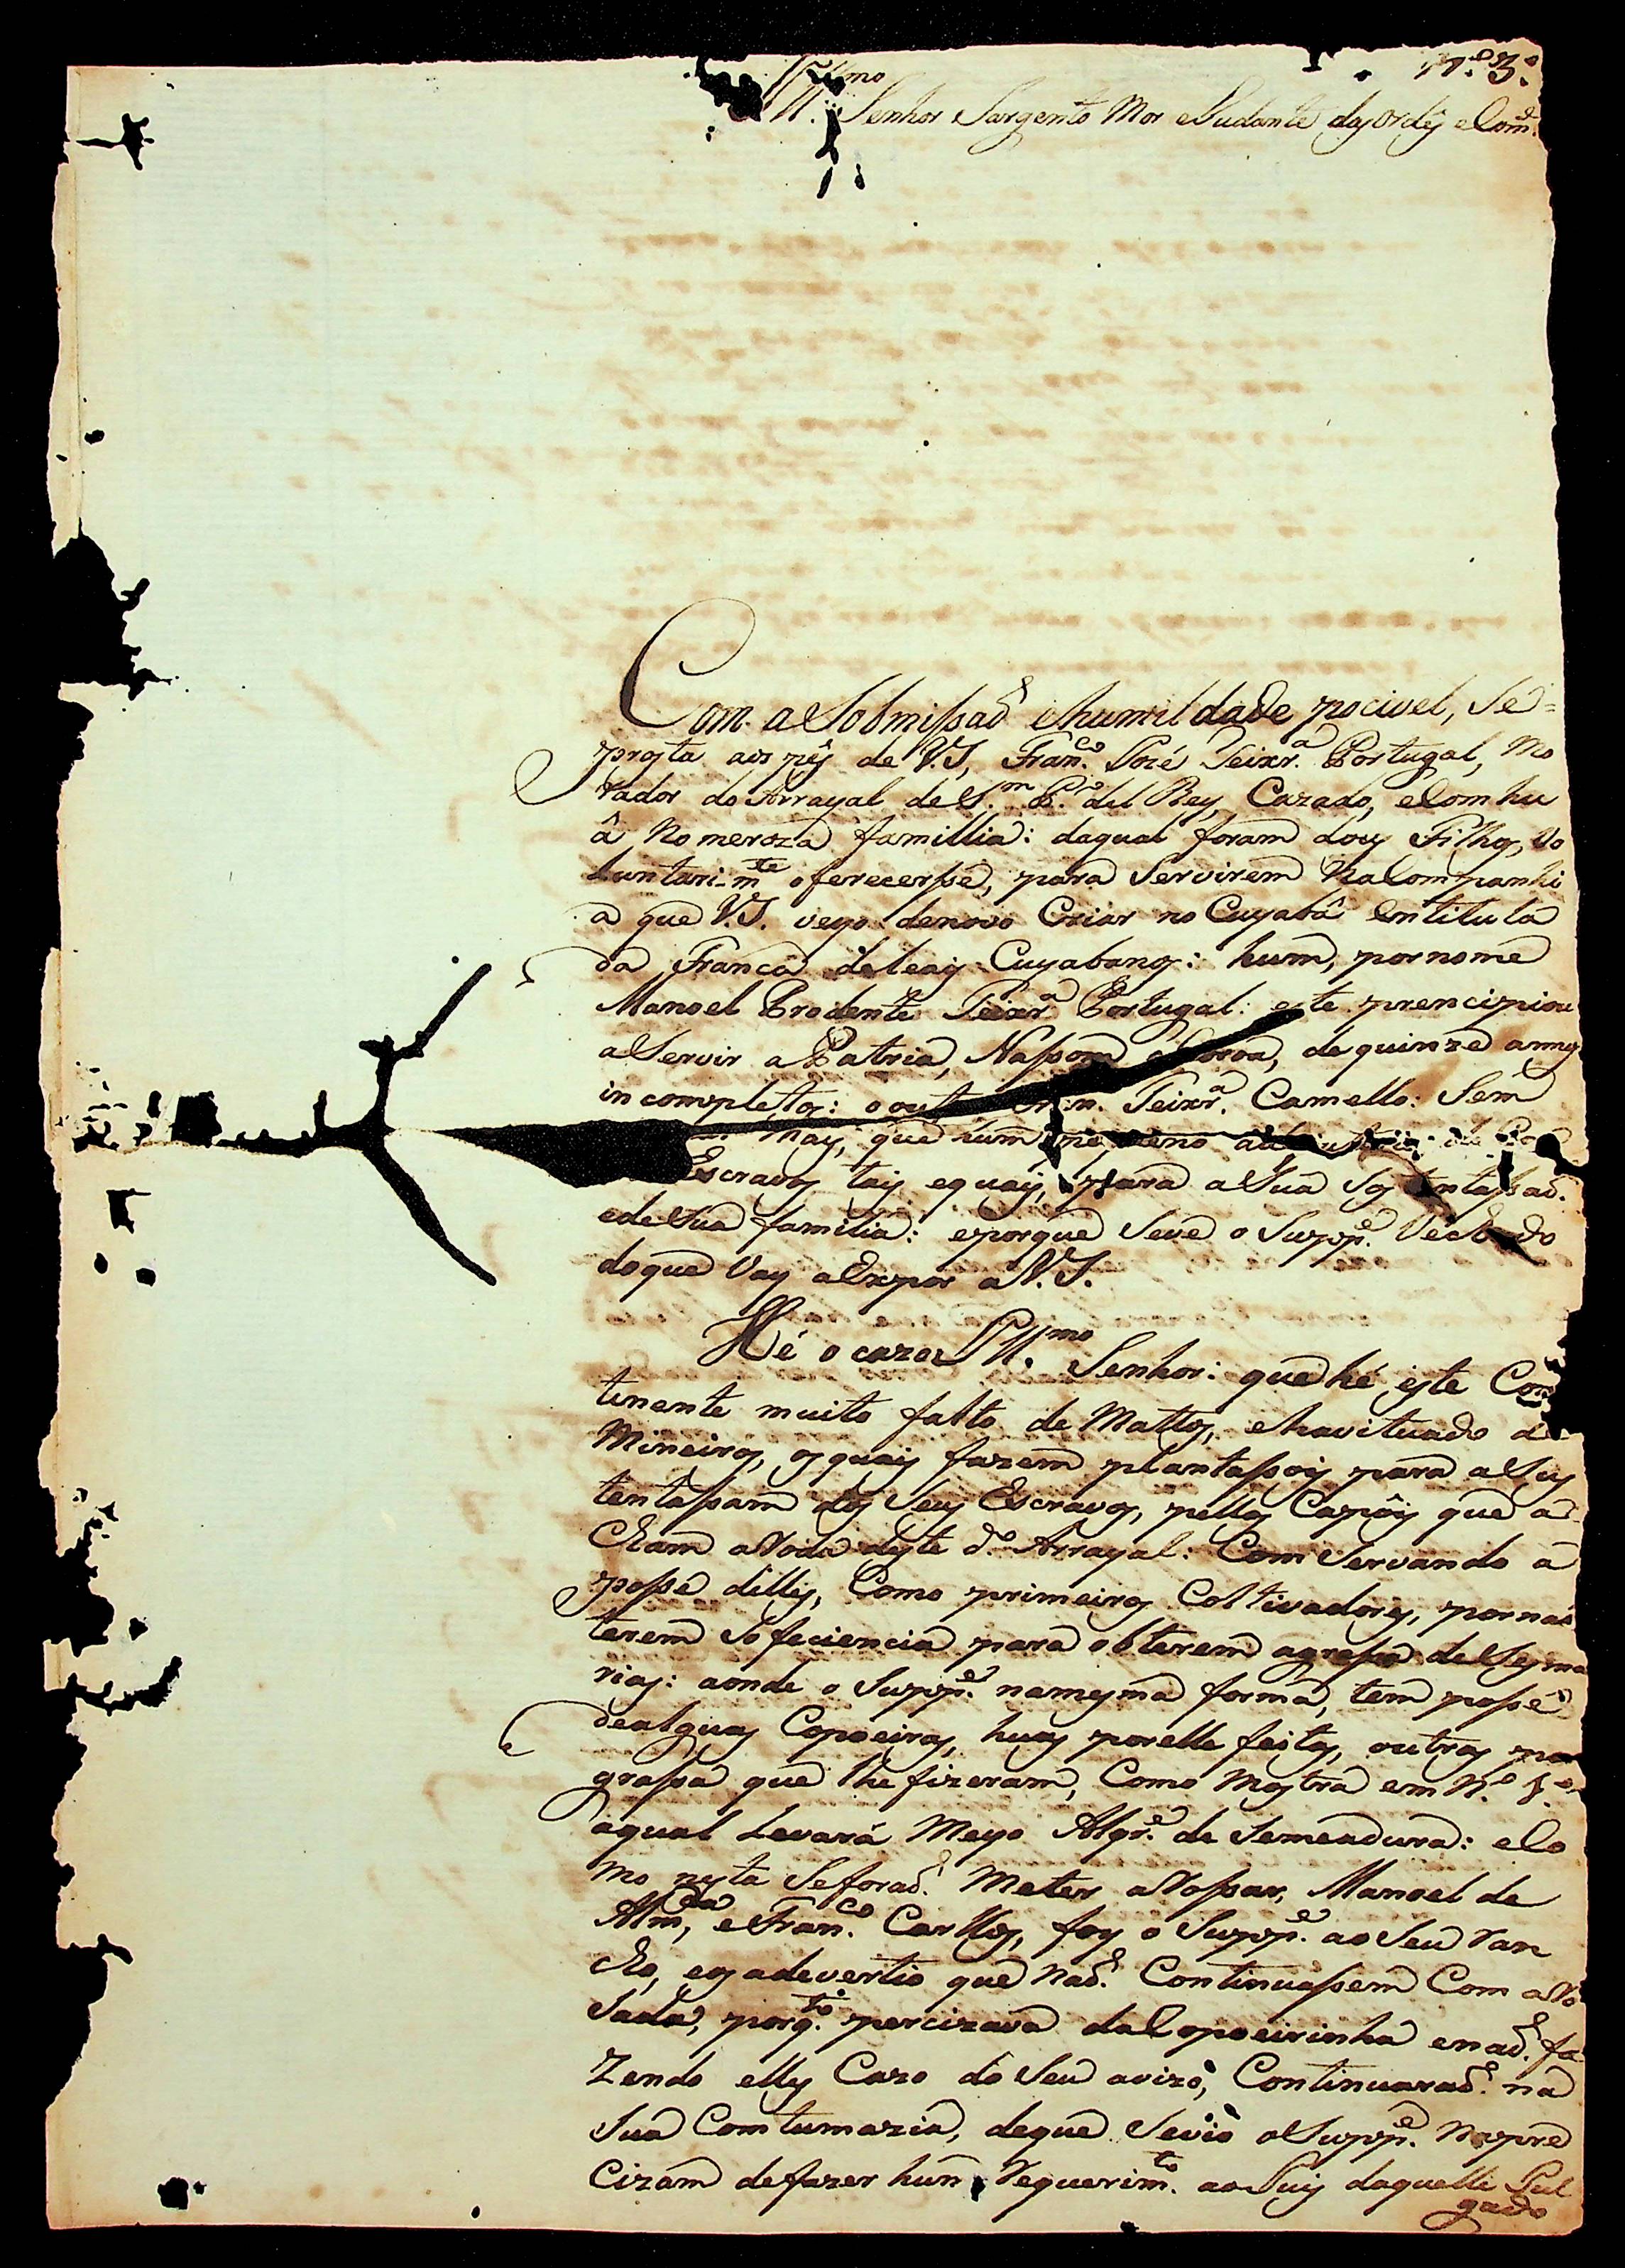 N.º 3º
Ill.mo Senhor Sargento Mor eAudante dasordẽs eCom.e
Com aSobmissaõ ehumildade pocivel, Se=
prosta aos pês de V.S, Fran.co Jozé Teixr.a Portugal, Mo
rador do Arrayal de S.m P.ro del Rey, Cazado, eComhu
â Nomeroza famillia: daqual foram doiz Filhos, Vo
luntari-m.te oferecersse, para Servirem NaCompanhi
a que V.S. veyo denovo Criar no Cuyabâ Entitula
da Franca deleais Cuyabanos: hum, pornome
Manoel Prodente Teixr.a Portugal: este prencipiou
aServir aPatria, Nassom aCoroa, dequinze annos
incompletos: oout Fran. Teixr.a Camello: Sem
mays, que hum pequeno de
Escravos tais equais, para aSua Sostentassaõ.
edeSua familia: eporque Seve o Supp.e Vechado
doque Vay aExpor aV.S.
Hé o cazo Ill.mo Senhor: quehé, este Con
tinente muito falto de Mattos, ehavituado de
Mineiros, osquais fazem plantassois para aSus
tentassam dos Seus Escravos, pellos Capõis que a
cham aRoda deste d.o Arrayal: ComServando a
posse delles, Como primeiros Coltivadores, pornaõ
terem Sofeciencia para obterem agrassa deSesma
rias: aonde o Supp.e namesma forma, tem posse
dealguas Copoeiras, huas porelle feitas, outras por
grassa que lhe fizeram, Como Mostra em N.º 1.º
aqual Levará Meyo Alqr.e de Semeadura: eCo
mo nesta Seforaõ. Meter aRossar, Manoel de
Alm.da, eFran.co Carllos, foy o Supp.e ao Seu Ran
cho, eos adevertio que Naõ. Continuassem Com aRo
Sada, porq.to percizava daCopoeirinha enaõ. fa
Zendo elles Cazo do Seu avizo, Continuaraõ. na
Sua Comtumazia, deque Sevio oSupp.e Naspre
Cizam defazer hum Requerim.to aoJuis daquelle Jul
gado